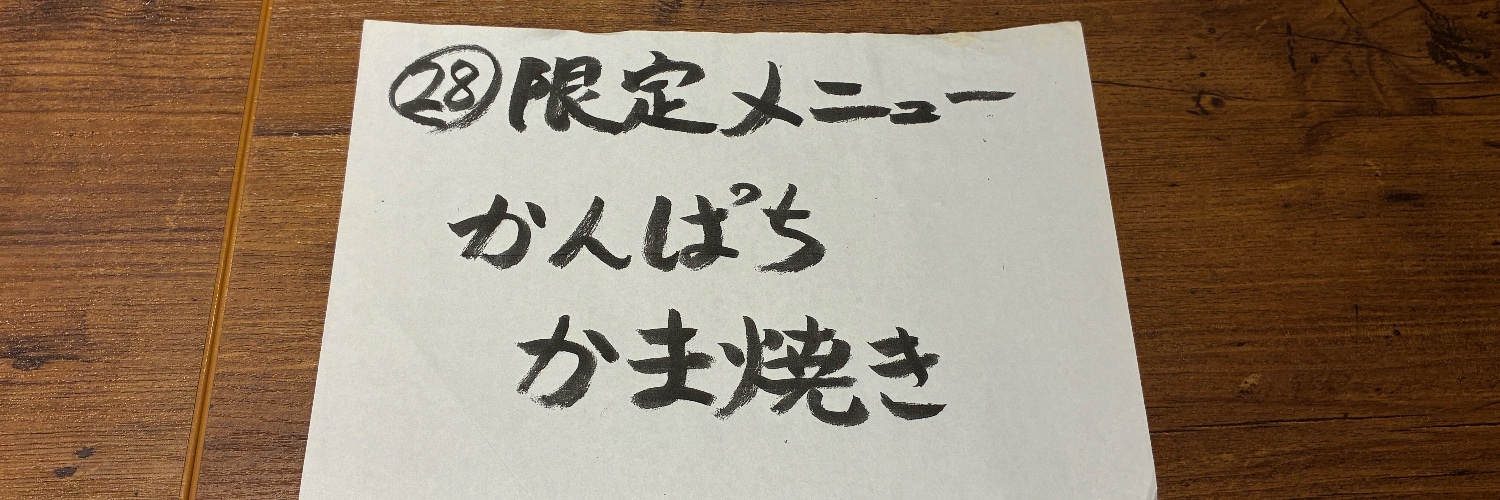 ㉘限定メニュー
かんぱち
かま焼き